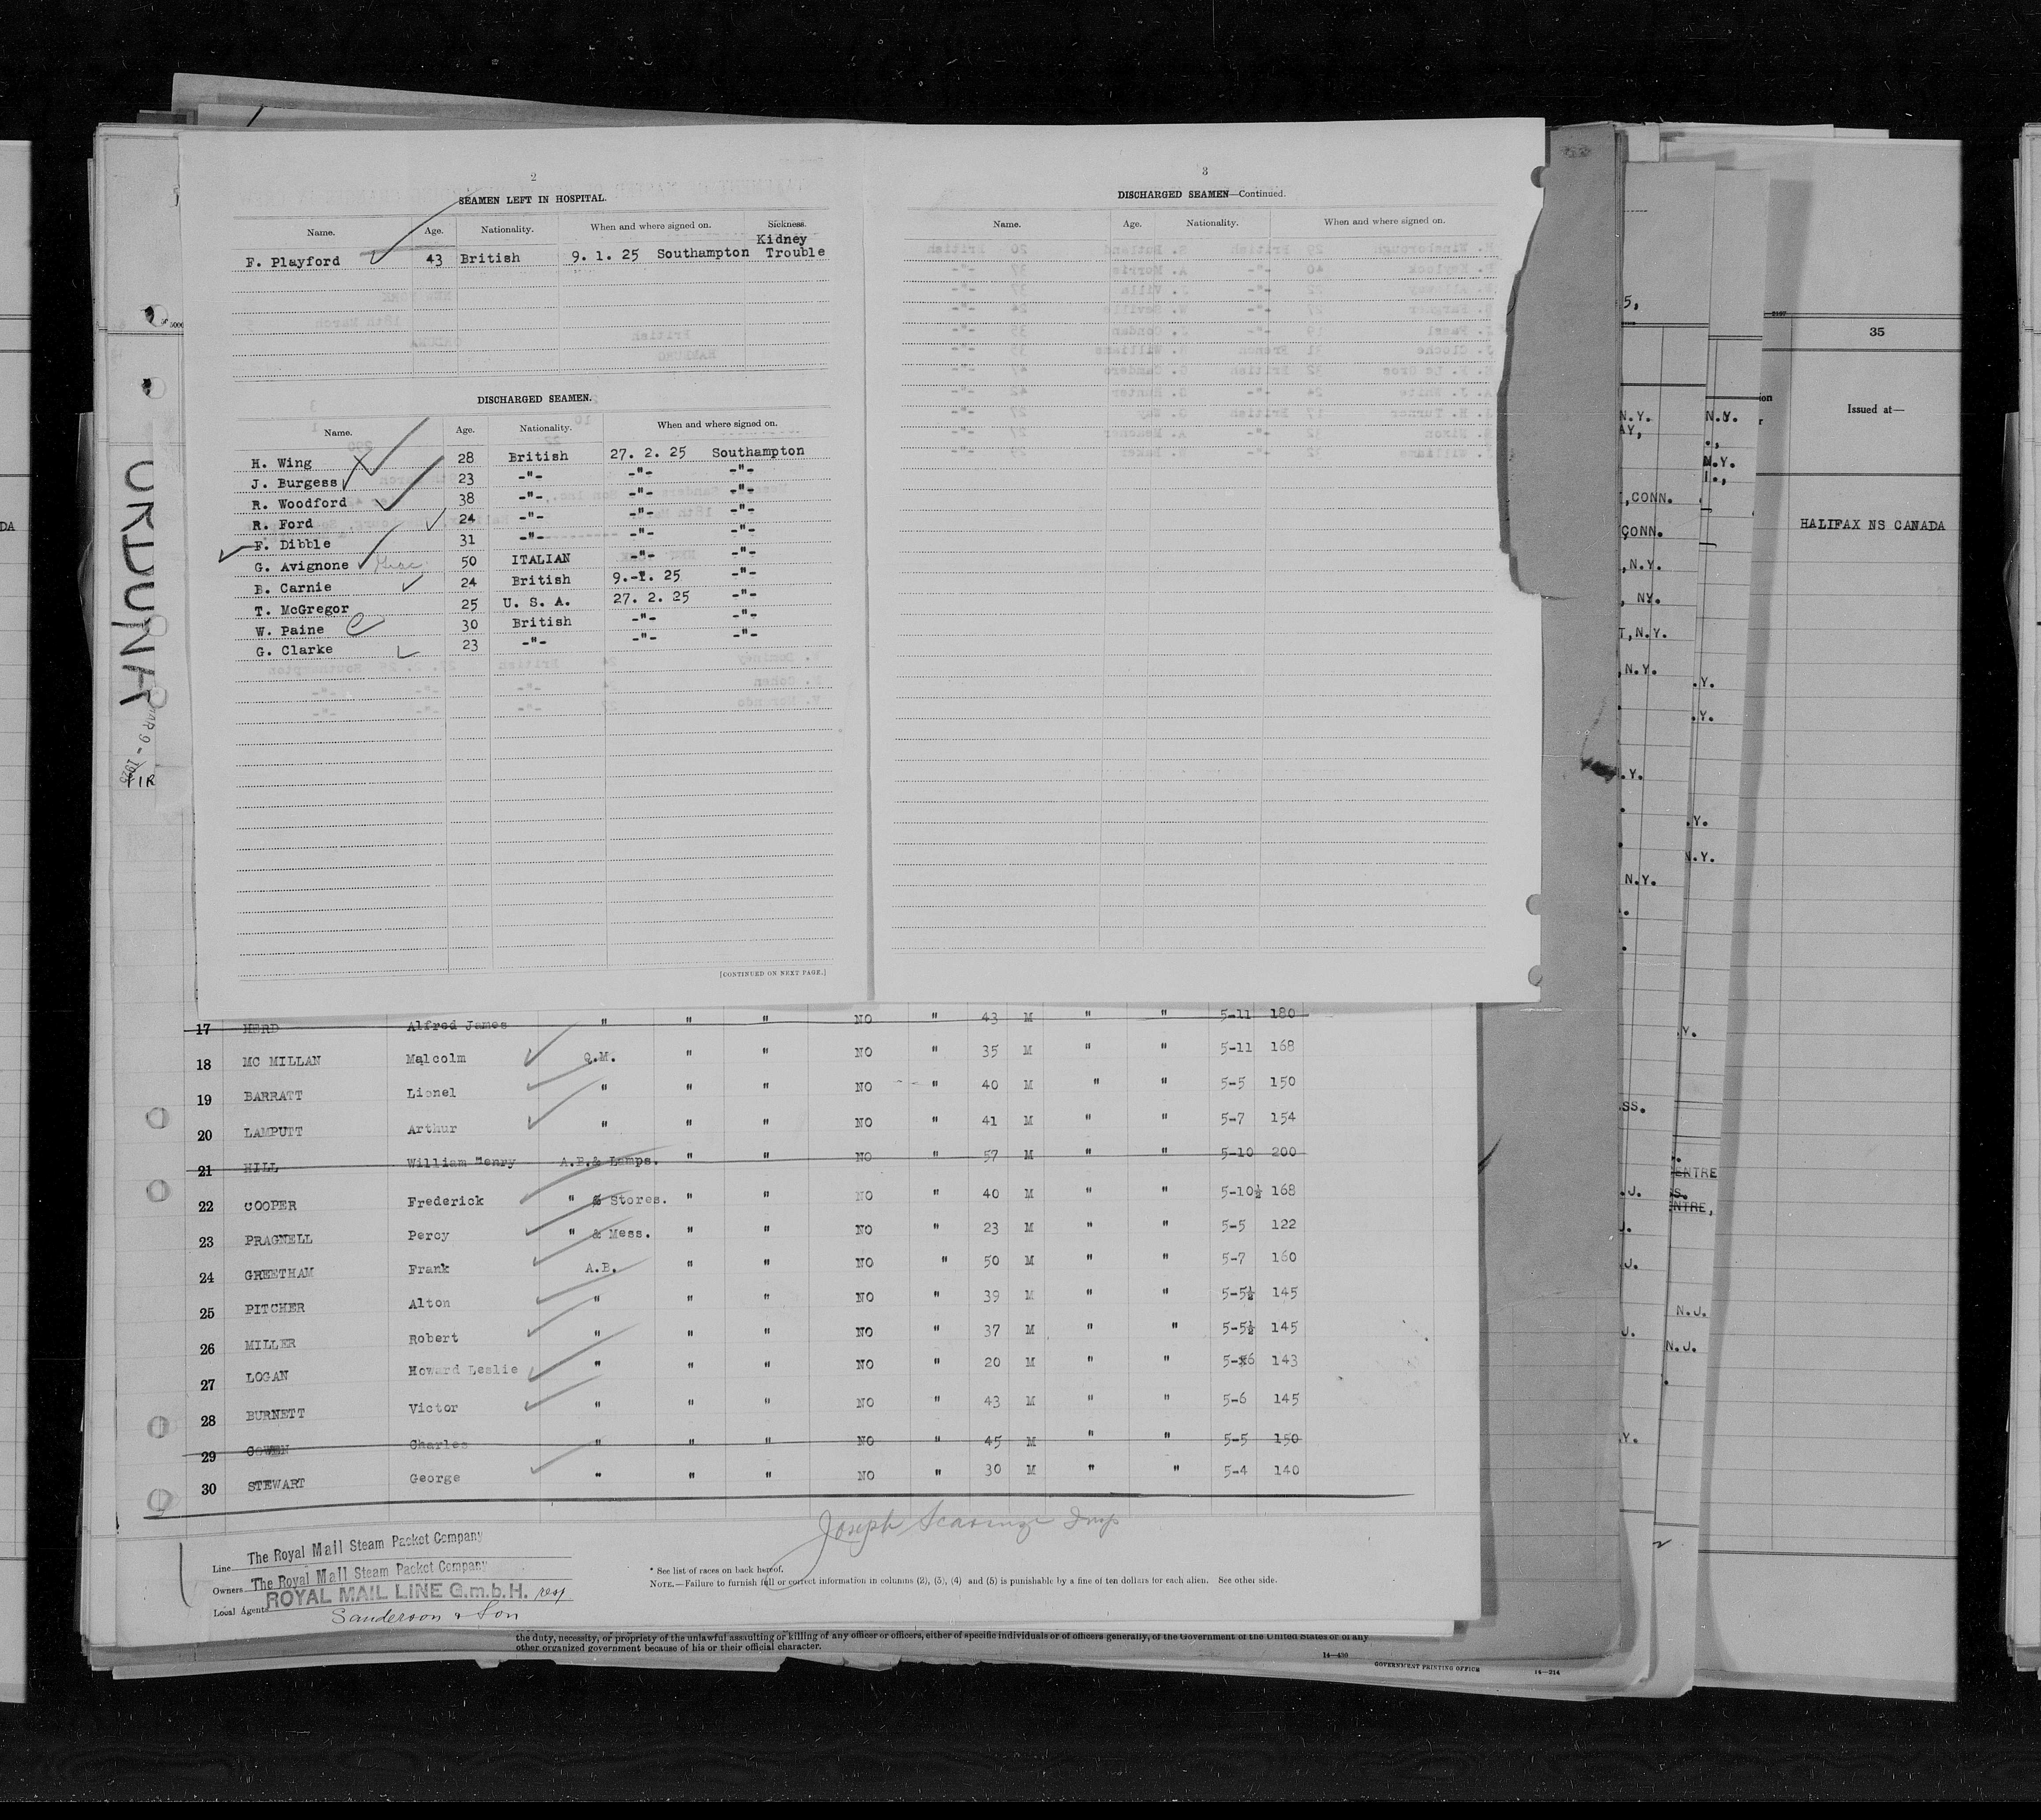 2
SEAMEN LEFT IN HOSPITAL.
Name. Age. Nationality. When and where signed on. Sickness.
F. Playford 43 British 9. 1. 25 Southampton Kidney Trouble
DISCHARGED SEAMEN.
Name. Age. Nationality. When and where signed on.
H. Wing 28 British 27. 2. 25 Southampton
J. Burgess 23 -"- -"- -"-
R. Woodford 38 -"- -"- -"-
R. Ford 24 -"- -"- -"-
F. Dibble 31 -"- -"- -"-
G. Avignone 50 ITALIAN -"- -"-
B. Carnie 24 British 9.-1. 25 -"-
T. McGregor 25 U. S. A. 27. 2. 25 -"-
W. Paine 30 British -"- -"-
G. Clarke 23 -"- -"- -"-
[CONTINUED ON NEXT PAGE.]
3
DISCHARGED SEAMEN—Continued.
Name. Age. Nationality. When and where signed on.
ORDUNA
MAR 9 - 1925
17 HERD Alfred James " " " NO " 43 M " " 5-11 180
18 MC MILLAN Malcolm Q.M. " " NO " 35 M " " 5-11 168
19 BARRATT Lionel " " " NO " 40 M " " 5-5 150
20 LAMPUTT Arthur " " " NO " 41 M " " 5-7 154
21 HILL William Henry A.B.& Lamps. " " NO " 57 M " " 5-10 200
22 COOPER Frederick " & Stores. " " NO " 40 M " " 5-10½ 168
23 PRAGNELL Percy " & Mess. " " NO " 23 M " " 5-5 122
24 GREETHAM Frank A.B. " " NO " 50 M " " 5-7 160
25 PITCHER Alton " " " NO " 39 M " " 5-5½ 145
26 MILLER Robert " " " NO " 37 M " " 5-5½ 145
27 LOGAN Howard Leslie " " " NO " 20 M " " 5-6 143
28 BURNETT Victor " " " NO " 43 M " " 5-6 145
29 COWEN Charles " " " NO " 45 M " " 5-5 150
30 STEWART George " " " NO " 30 M " " 5-4 140
Joseph Insp
Line The Royal Mail Steam Packet Company
Owners The Royal Mail Steam Packet Company
Local Agents ROYAL MAIL LINE G.m.b.H.
Sanderson & Son
* See list of races on back hereof.
NOTE.—Failure to furnish full or correct information in columns (2), (3), (4) and (5) is punishable by a fine of ten dollars for each alien. See other side.
the duty, necessity, or propriety of the unlawful assaulting or killing of any officer or officers, either of specific individuals or of officers generally, of the Government of the United States or of any
other organized government because of his or their official character.
14—430
GOVERNMENT PRINTING OFFICE
14—214
35
Issued at—
HALIFAX NS CANADA
N.Y.
N.Y.
N.Y.
CONN.
CONN.
N.Y.
NY.
N.Y.
N.Y.
N.Y.
N.Y.
N.J.
N.J.